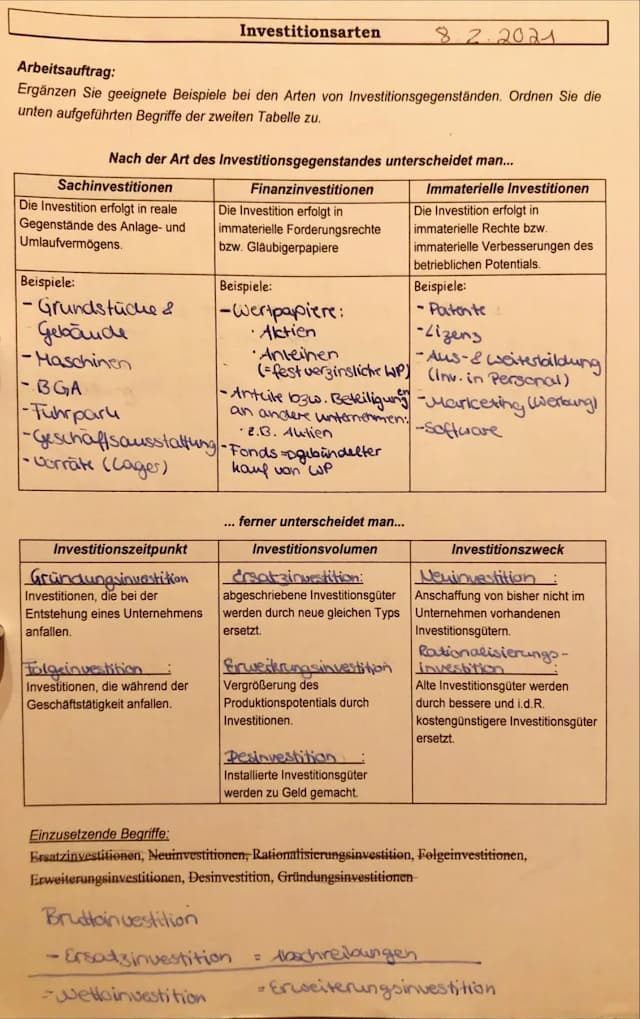 Investitionsarten
8.2.2021
Arbeitsauftrag:
Ergänzen Sie geeignete Beispiele bei den Arten von Investitionsgegenständen. Ordnen Sie die
unten aufgeführten Begriffe der zweiten Tabelle zu.
Nach der Art des Investitionsgegenstandes unterscheidet man...
Sachinvestitionen
Die Investition erfolgt in reale
Gegenstände des Anlage- und
Umlaufvermögens.
Beispiele:
- Grundstücke &
Gebäude
- Maschinen
- BGA
- Fuhrpark
- Geschäftsausstattung
- Vorräte (Lager)
Finanzinvestitionen
Die Investition erfolgt in
immaterielle Forderungsrechte
bzw. Gläubigerpapiere
Beispiele:
- Wertpapiere:
· Aktien
· Anleihen
(= festverzinsliche WP)
- Anteile bzw. Beteiligungen
an andere Unternehmen:
· z.B. Aktien
- Fonds => gebündelter
kauf von WP
Immaterielle Investitionen
Die Investition erfolgt in
immaterielle Rechte bzw.
immaterielle Verbesserungen des
betrieblichen Potentials.
Beispiele:
- Patente
- Lizenz
- Aus- & Weiterbildung
(Inv. in Personal)
- Marketing (Werbung)
- Software
... ferner unterscheidet man...
Investitionszeitpunkt
Gründungsinvestition
Investitionen, die bei der
Entstehung eines Unternehmens
anfallen.
Folgeinvestition :
Investitionen, die während der
Geschäftstätigkeit anfallen.
Investitionsvolumen
Ersatzinvestition:
abgeschriebene Investitionsgüter
werden durch neue gleichen Typs
ersetzt.
Erweiterungsinvestition
Vergrößerung des
Produktionspotentials durch
Investitionen.
Desinvestition :
Installierte Investitionsgüter
werden zu Geld gemacht.
Investitionszweck
Neuinvestition :
Anschaffung von bisher nicht im
Unternehmen vorhandenen
Investitionsgütern.
Rationalisierungs-
investition :
Alte Investitionsgüter werden
durch bessere und i.d.R.
kostengünstigere Investitionsgüter
ersetzt.
Einzusetzende Begriffe:
Ersatzinvestitionen, Neuinvestitionen, Rationalisierungsinvestition, Folgeinvestitionen,
Erweiterungsinvestitionen, Desinvestition, Gründungsinvestitionen
Bruttoinvestition
- Ersatzinvestition = Abschreibungen
= Nettoinvestition = Erweiterungsinvestition